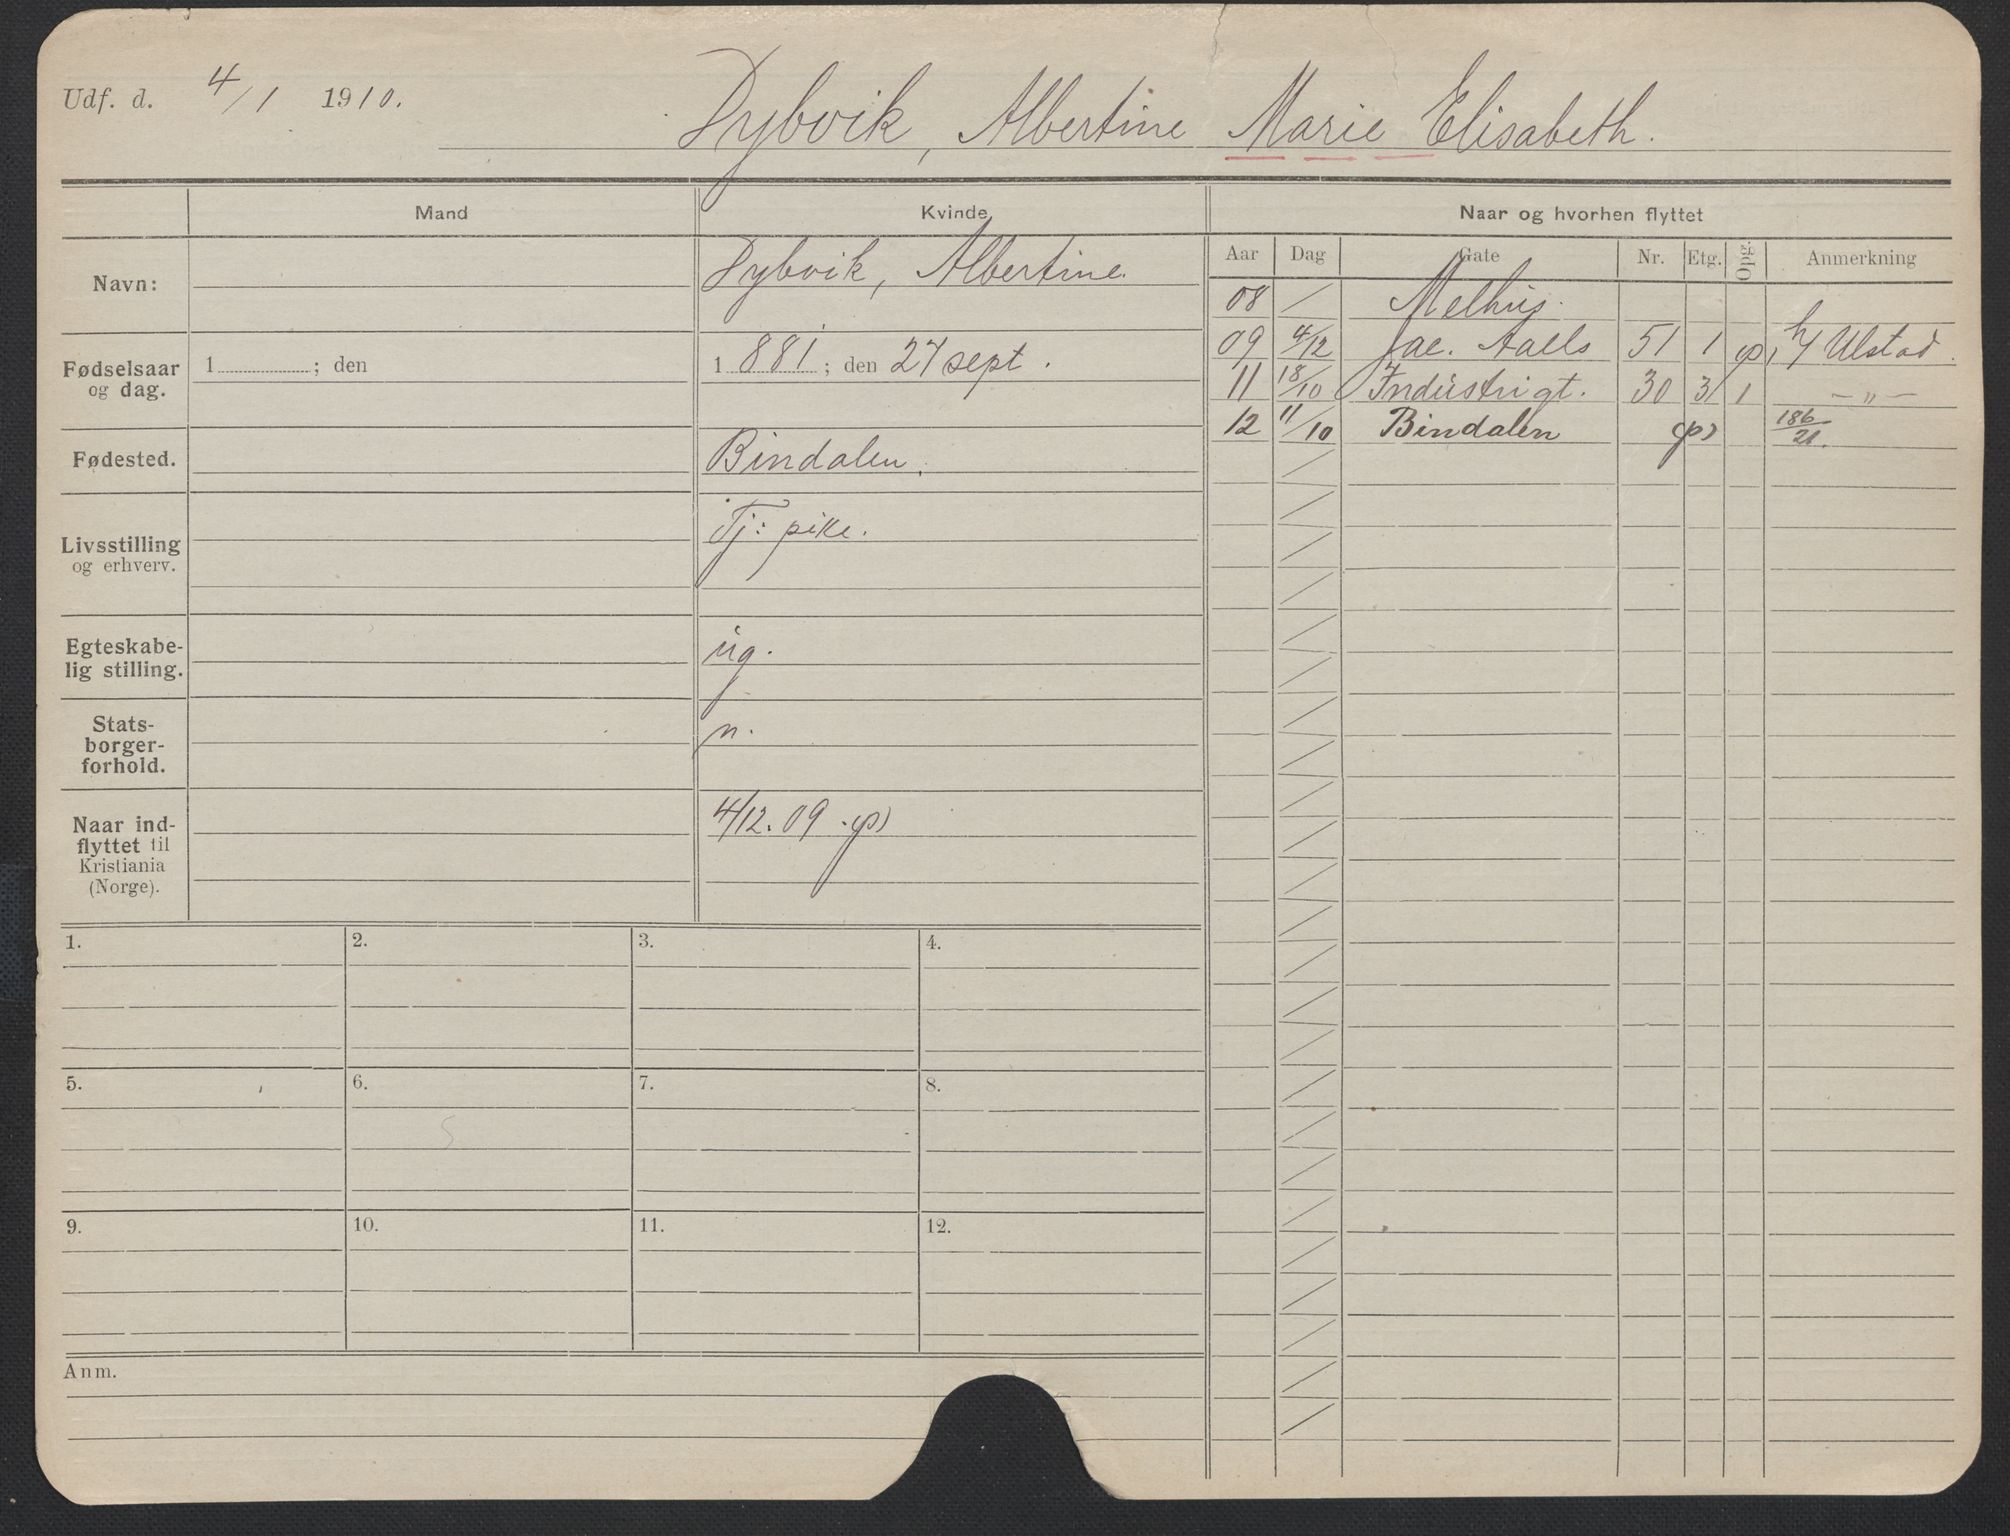 Udf. d. 4/1 1910. Dybvik, Albertine Marie Elisabeth.
Mand Kvinde Naar og hvorhen flyttet
Aar Dag Gate Nr. Etg. Opg. Anmerkning
Navn: Dybvik, Albertine.
08 Melhus.
09 4/12 Jac. Aalls 51 1 Ulstad.
11 18/10 Industrigt. 30 3 1 — „ —
12 11/10 Bindalen (ps) 186/21.
Fødselsaar og dag. 1 ; den 1 881 ; den 27 sept.
Fødested. Bindalen.
Livsstilling og erhverv. Tj: pike.
Egteskabe-
lig stilling. ug.
Stats-
borger-
forhold. n.
Naar ind-
flyttet til
Kristiania
(Norge). 4/12. 09 (ps)
1. 2. 3. 4.
5. 6. 7. 8.
9. 10. 11. 12.
Anm.